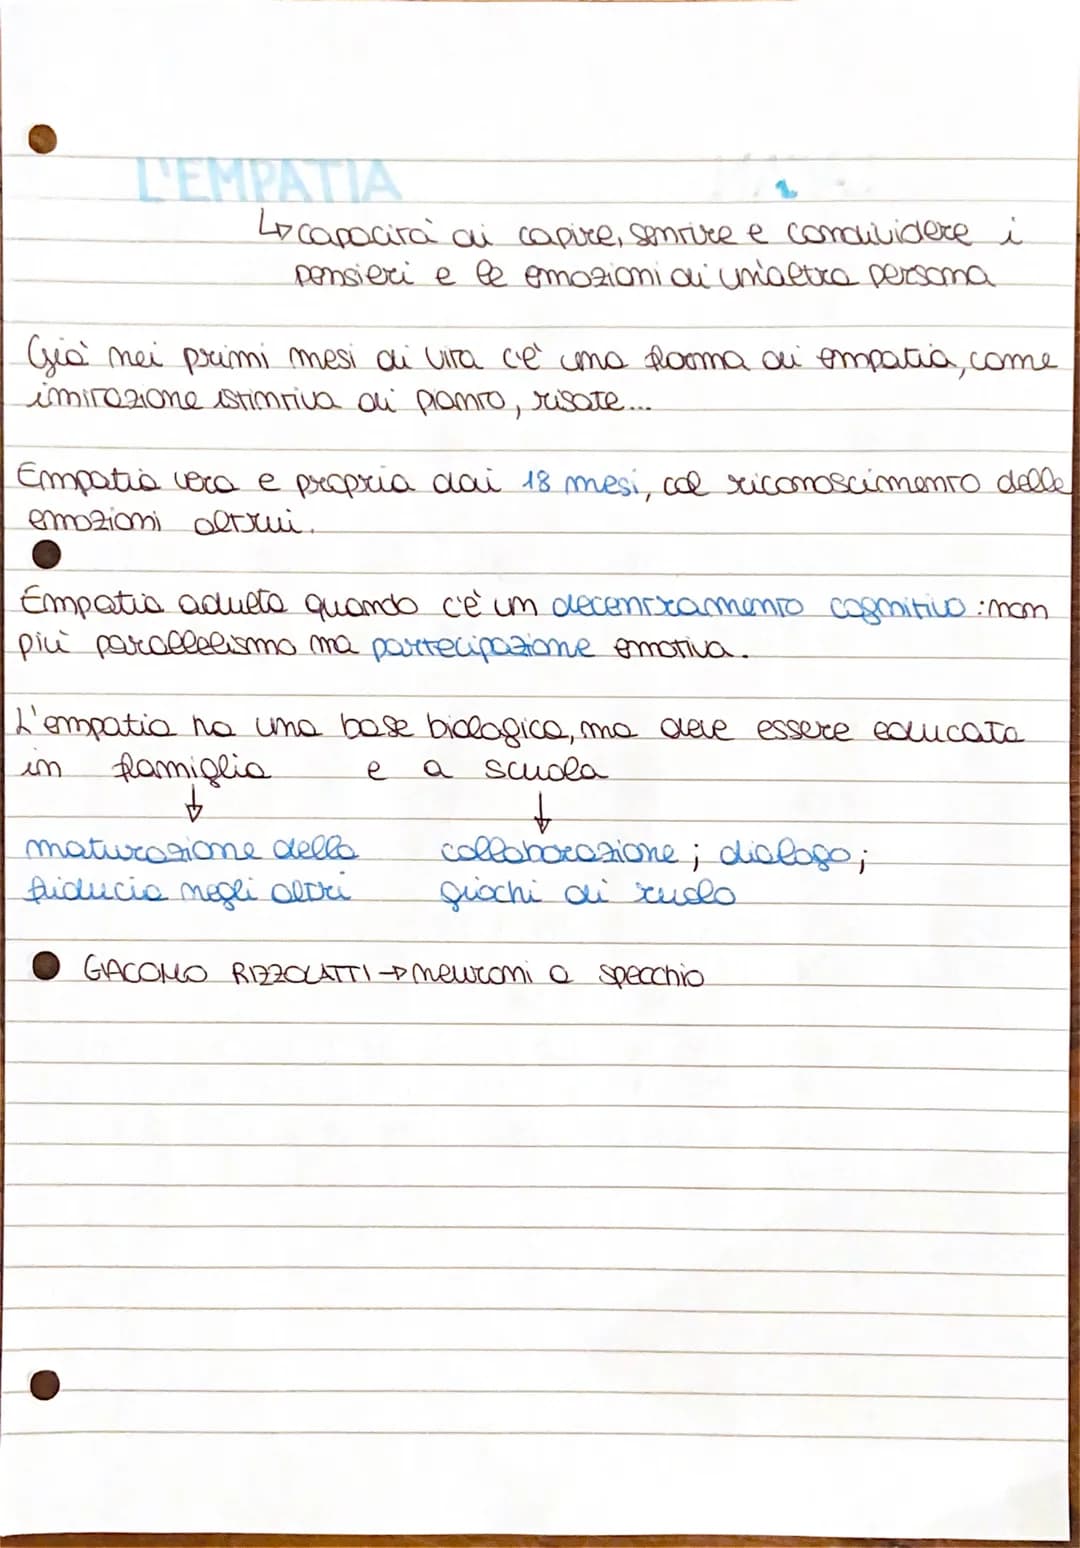 L'EMPATIA
↳ capacità di capire, sentire e condividere i
pensieri e le emozioni di un'altra persona
Già nei primi mesi di vita c'è una forma di empatia, come
imitazione istintiva di pianto, risate...
Empatia vera e propria dai 18 mesi, col riconoscimento delle
emozioni altrui.
Empatia adulta quando c'è un decentramento cognitivo : non
più parallelismo ma partecipazione emotiva.
L'empatia ha una base biologica, ma deve essere educata
in famiglia e a scuola
↓ ↓
maturazione della collaborazione ; dialogo ;
fiducia negli altri giochi di ruolo
GIACOMO RIZZOLATTI → neuroni a specchio